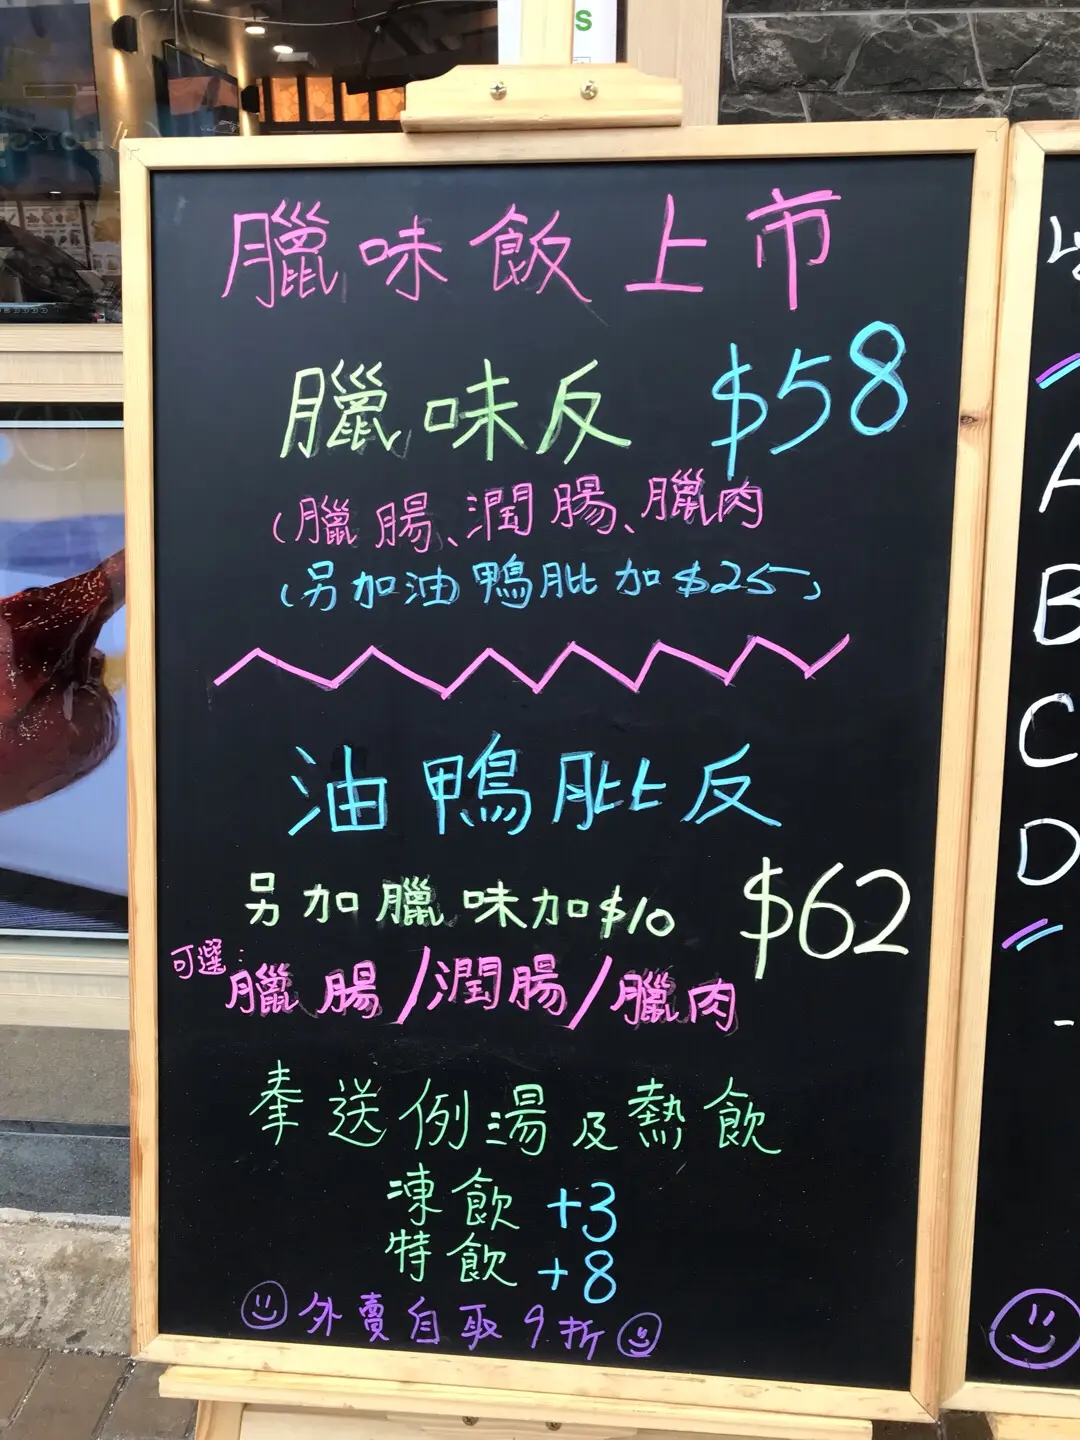 S
臘味飯上市
臘味反 $58
(臘腸、潤腸、臘肉
(另加油鴨肶加$25)
油鴨肶反
另加臘味加$10 $62
可選：臘腸/潤腸/臘肉
奉送例湯及熱飲
凍飲 +3
特飲 +8
外賣自取9折
A
B
C
D